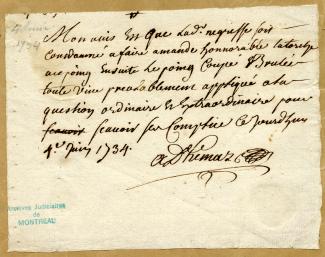 4 Juin
1734
Mon avis est que Lad. negresse soit
Condamné a faire amande honnorable la torche
au poing Ensuite Le poing Coupé & Brulée
toute vive prealablement appliquée a la
question ordinaire et Extraordinaire pour
scavoir scavoir ses Complice Ce jourdhuy
4e. juin 1734.
ADhemar
Archives Judiciaires
de
MONTREAL